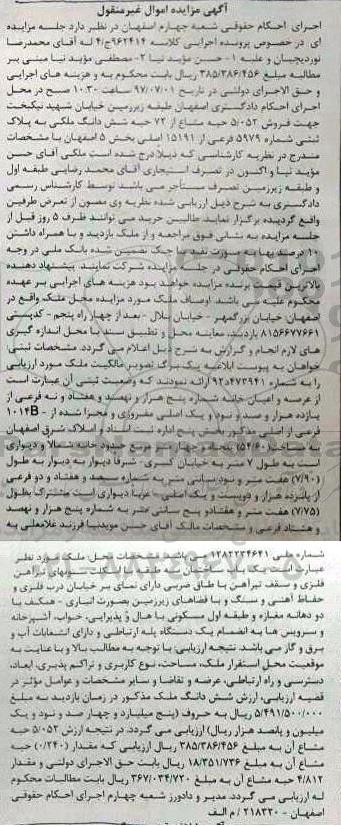 آگهی مزایده اموال غیرمنقول
اجرای احکام حقوقی شعبه چهارم اصفهان در نظر دارد جلسه مزایده
ای در خصوص پرونده اجرایی کلاسه ۹۶۲۴۱۴ج/۴ له آقای محمدرضا
نوردیجیان و علیه ۱- حسن مؤید نیا ۲- مصطفی مؤید نیا مبنی بر
مطالبه مبلغ ۳۸۵/۳۸۶/۴۵۶ ریال بابت محکوم به و هزینه های اجرایی
و حق الاجرای دولتی در تاریخ ۹۷/۰۷/۰۱ ساعت ۱۰:۳۰ صبح در محل
اجرای احکام دادگستری اصفهان طبقه زیرزمین خیابان شهید نیکبخت
جهت فروش ۵/۰۵۲ حبه مشاع از ۷۲ حبه شش دانگ ملکی به پلاک
ثبتی شماره ۵۹۷۹ فرعی از ۱۵۱۹۱ اصلی بخش ۵ اصفهان با مشخصات
مندرج در نظریه کارشناسی که ذیلا درج شده است ملکی آقای حسن
مؤید نیا و اکنون در تصرف استیجاری آقای محمد رضایی طبقه اول
و طبقه زیرزمین تصرف مستأجر می باشد توسط کارشناس رسمی
دادگستری به شرح ذیل ارزیابی شده نظریه وی مصون از تعرض طرفین
واقع گردیده برگزار نماید طالبین خرید می توانند ظرف ۵ روز قبل از
جلسه مزایده به نشانی فوق مراجعه و از ملک بازدید و با همراه داشتن
۱۰ درصد بهای به صورت نقد یا چک تضمین شده بانک ملی در وجه
اجرای احکام حقوقی در جلسه مزایده شرکت نمایند. پیشنهاد دهنده
بالاترین قیمت برنده مزایده خواهد بود هزینه های اجرایی بر عهده
محکوم علیه می باشد. اوصاف ملک مورد مزایده محل ملک واقع در
اصفهان خیابان بزرگمهر - خیابان بلال - بعد از چهار راه پنجم - کدپستی
۸۱۵۶۶۷۷۶۶۱ بازدید، معاینه محل و تطبیق سند با محل اندازه گیری
های لازم انجام و گزارش به شرح ذیل اعلام می گردد. مشخصات ثبتی:
خواهان به پیوست ابلاغیه یک برگ تصویر مالکیت ملک مورد ارزیابی
را به شماره ۹۲د۴۷۳۹۴۱ ارائه نمودند که وضعیت ثبتی آن عبارت است
از عرصه و اعیان خانه شماره پنج هزار و نهصد و هفتاد و نه فرعی از
پانزده هزار و صد و نود و یک اصلی مفروزی و مجزا شده از ۱۰۱۴B
فرعی از اصلی مذکور بخش پنج اداره ثبت اسناد و املاک شرق اصفهان
به مساحت (۵۴/۶۰) پنجاه و چهار متر مربع حدود خانه شمالا و دیواری
است به طول ۷ متر به خیابان کسری- شرقا دیوار به دیوار به طول
(۷/۹۰) هفت متر و نود سانتی متر به شماره سیصد و هفتاد و دو فرعی
از پانزده هزار و دویست و یک اصلی- غربا دیواری است مشترک بطول
(۷/۷۵) هفت متر و هفتادو پنج سانتی متر به شماره پنج هزار و نهصد
و هشتاد فرعی و مشخصات مالک آقای حسن مویدنیا فرزند غلامعلی به
شماره ملی ۱۲۸۲۲۳۴۶۴۱ می باشد. مشخصات محل: ملک مورد نظر
عبارت است یک باب ساختمان سه طبقه با اسکلت ستونهای تیرآهن
فلزی و سقف تیرآهن با طاق ضربی دارای نمای بر خیابان درب فلزی و
حفاظ آهنی و سنگ و با فضاهای زیرزمین بصورت انباری - همکف با
دو دهانه مغازه و طبقه اول مسکونی با هال و پذیرایی، خواب، آشپزخانه
و سرویس ها به انضمام یک دستگاه پله ارتباطی و دارای انشعابات آب و
برق و گاز می باشد. نتیجه ارزیابی: با توجه به مطالب بالا و با عنایت به
موقعیت محل استقرار ملک، مساحت، نوع کاربری و تراکم پذیری، ابعاد،
دسترسی و راه ارتباطی، عرضه و تقاضا و سایر مشخصات و عوامل مؤثر در
قضیه ارزیابی، ارزش شش دانگ ملک مذکور در زمان بازدید به مبلغ
۵/۴۹۱/۵۰۰/۰۰۰ ریال به حروف (پنج میلیارد و چهار صد و نود و یک
میلیون و پانصد هزار ریال) ارزیابی می گردد. در نتیجه ارزش ۵/۰۵۲ حبه
مشاع آن به مبلغ ۳۸۵/۳۸۶/۴۵۶ ریال ارزیابی که مقدار (۰/۲۴۰) حبه
مشاع آن به مبلغ ۱۸/۳۵۱/۷۳۶ ریال بابت حق الاجرای دولتی و مقدار
۴/۸۱۲ حبه مشاع آن به مبلغ ۳۶۷/۰۳۴/۷۲۰ ریال بابت مطالبات محکوم
له ارزیابی می گردد. مدیر و دادورز شعبه چهارم اجرای احکام حقوقی
اصفهان - ۲۱۸۳۲۰ / م الف